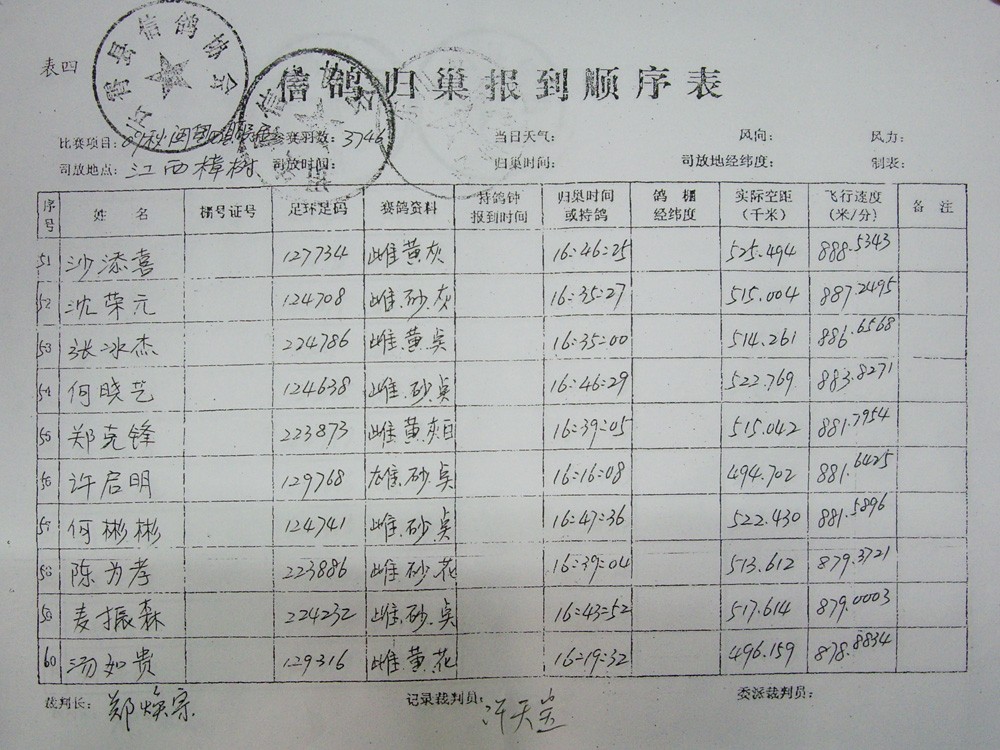 表四
信鸽归巢报到顺序表
比赛项目: 参赛羽数: 3746 当日天气: 风向: 风力:
司放地点: 江西樟树 司放时间: 归巢时间: 司放地经纬度: 制表:
序号 姓名 棚号证号 足环足码 赛鸽资料 持鸽钟报到时间 归巢时间或持鸽 鸽棚经纬度 实际空距(千米) 飞行速度(米/分) 备注
51 沙添喜 127734 雌黄灰 16:46:25 525.494 888.5343
52 沈荣元 124708 雌.砂.灰 16:35:27 515.004 887.2495
53 张冰杰 224786 雌.黄.吴 16:35:00 514.261 886.6568
54 何晓艺 124638 雌.砂.吴 16:46:29 522.769 883.8271
55 郑克锋 223873 雌黄灰白 16:39:05 515.042 881.7954
56 许启明 129768 雄.砂.吴 16:16:08 494.702 881.6425
57 何彬彬 124741 雌.砂.吴 16:47:36 522.430 881.5896
58 陈为孝 223886 雌.砂.花 16:39:04 513.612 879.3721
59 麦振森 224232 雌.砂.吴 16:43:52 517.614 879.0003
60 汤如贵 129316 雌.黄.花 16:19:32 496.159 878.8834
裁判长: 郑焕宗 记录裁判员: 委派裁判员: